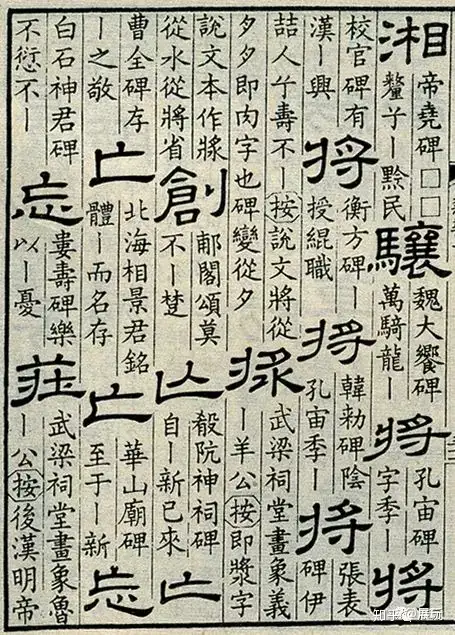 湘 帝堯碑□□鼇子丨黔民 驤 魏大饗碑萬騎龍丨 將 孔宙碑字季丨 將
校官碑有漢丨興 將 衡方碑丨授緄職 將 韓勑碑陰孔宙季丨 將 張表碑伊
喆人兮壽不丨按說文將從夕夕即肉字也碑變從夕 武梁祠堂畫象義丨羊公按即漿字
說文本作漿從水從將省 創 郙閣頌莫不丨楚 亡 殽阬神祠碑自丨新已來 亡
曹全碑存丨之敬 亡 北海相景君銘體丨而名存 亡 華山廟碑至于丨新 忘
白石神君碑不愆不丨 忘 婁壽碑樂以丨憂 莊 武梁祠堂畫象魯丨公按後漢明帝
知乎 @展玩